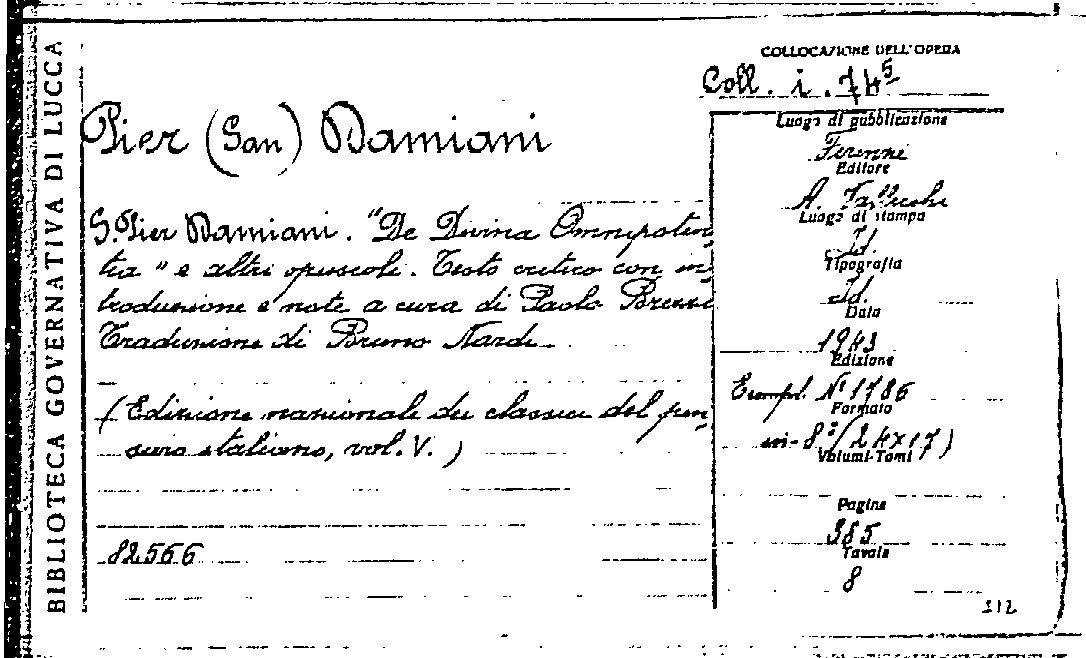 BIBLIOTECA GOVERNATIVA DI LUCCA
COLLOCAZIONE DELL'OPERA
Coll. i. 74⁵
Pier (San) Damiani
S. Pier Damiani. "De Divina Omnipoten
tia" e altri opuscoli. Testo critico con in
troduzione e note a cura di Paolo Brezzi
Traduzione di Bruno Nardi
(Edizione nazionale dei classici del pen
siero italiano, vol. V.)
82566
Luogo di pubblicazione
Firenze
Editore
A. Vallecchi
Luogo di stampa
Id.
Tipografia
Id.
Data
1943
Edizione
Esempl. Nº 1786
Formato
in-8º (24x17)
Volumi-Tomi
Pagine
385
Tavole
8
112